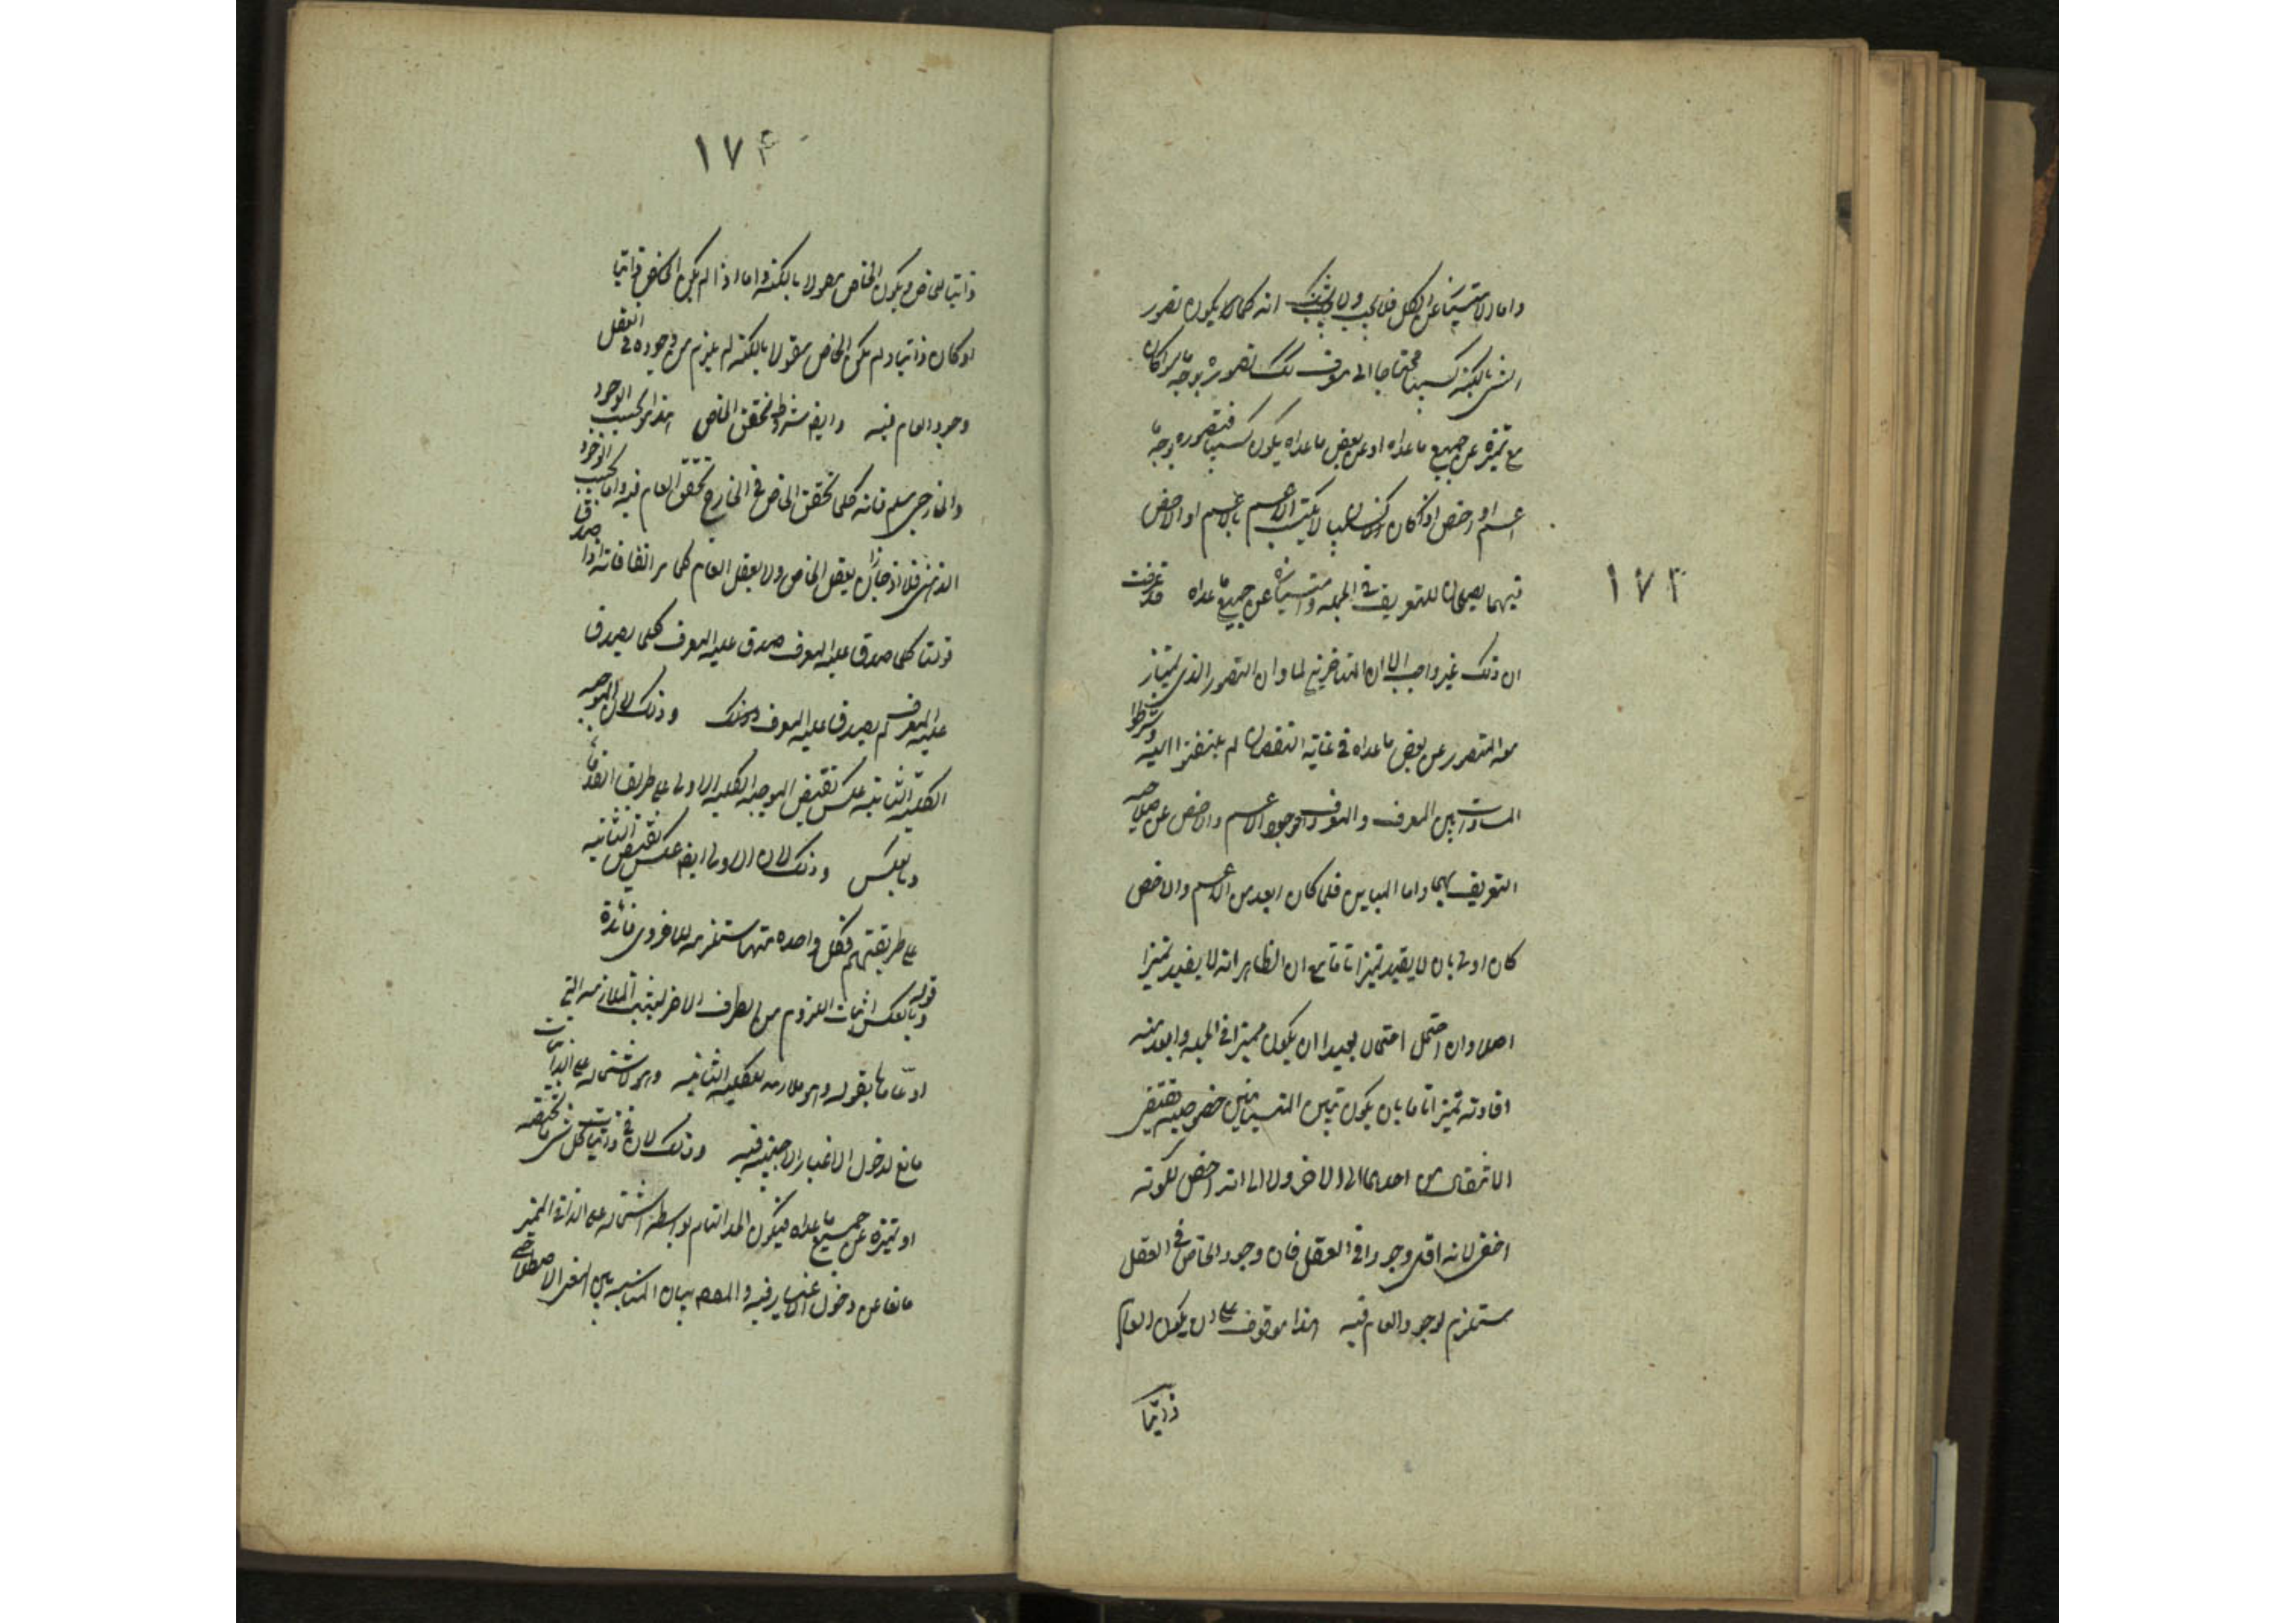 ١٧٣
واما الامتياز عن الكل فلا يجب ولا شك انه كما يكون تصور
الشئ بالكنه كسبيا محتاجا الى معرف كذلك تصوره بوجه ما سواء كان
مع تميزه عن جميع ما عداه او عن بعض ما عداه يكون كسبيا فتصوره بوجه
اعم او اخص اذا كان كسبيا لا يكتسب الا بالاعم او الاخص
فهما يصلحان للتعريف في الجملة وامتيازه عن جميع ما عداه قد عرفت
ان ذلك غير واجب الا ان المتأخرين لما رأوا ان التصور الذي يمتاز
معه المتصور عن بعض ما عداه في غاية النقصان لم يلتفتوا اليه وشرطوا
المساواة بين المعرف والمعرف واخرجوا الاعم والاخص عن صلاحية
التعريف بهما واما المباين فلما كان ابعد من الاعم والاخص
كان اولى بان لا يفيد تميزا تاما مع ان الظاهر انه لا يفيد تميزا
اصلا وان احتمل احتمالا بعيدا ان يكون مميزا في الجملة وابعد منه
افادته تميزا تاما بان يكون بين المتباينين خصوصية تقتضي
الانتقال من احدهما الى الاخر ولا الى انه اخص لكونه
اخفى لانه اقل وجودا في العقل فان وجود الخاص في العقل
مستلزم لوجود العام فيه هذا موقوف على ان يكون العام
ذاتيا
١٧٤
ذاتيا للخاص ويكون الخاص معقولا بالكنه واما اذا لم يكن العام ذاتيا
او كان ذاتيا ولم يكن الخاص معقولا بالكنه لم يلزم من وجوده في العقل
وجود العام فيه وايضا شروط تحقق الخاص هذا بحسب الوجود
الخارجي مسلم فانه كلما تحقق الخاص في الخارج تحقق العام فيه واما بحسب الوجود
الذهني فلا اذ جاز ان يعقل الخاص ولا يعقل العام كما مر انفا فانه اذا صدق
قولنا كلما صدق عليه المعرف صدق عليه المعرف فكلما لم يصدق
عليه المعرف لم يصدق عليه المعرف وذلك لان الموجبة
الكلية الثانية عكس نقيض الموجبة الكلية الاولى على طريقة القدماء
وبالعكس وذلك لان الاولى ايضا عكس نقيض الثانية
على طريقتهم فكل واحدة منهما مستلزمة للاخرى فائدة
قوله وبالعكس اثبات اللزوم من الطرف الاخر ليثبت الملازمة التي
ادعاها بقوله وهو ملازمه للكلية الثانية وهو لاشتماله على الذاتيات
مانع لدخول الاغيار الاجنبية فيه وذلك لان في ذاتيات كل شئ ما يخصه
او تميزه عن جميع ما عداه فيكون الحد التام بواسطة اشتماله على الذاتي المميز
مانعا عن دخول الاغيار فيه والمقصود بيان المناسبة بين المعنى الاصطلاحي